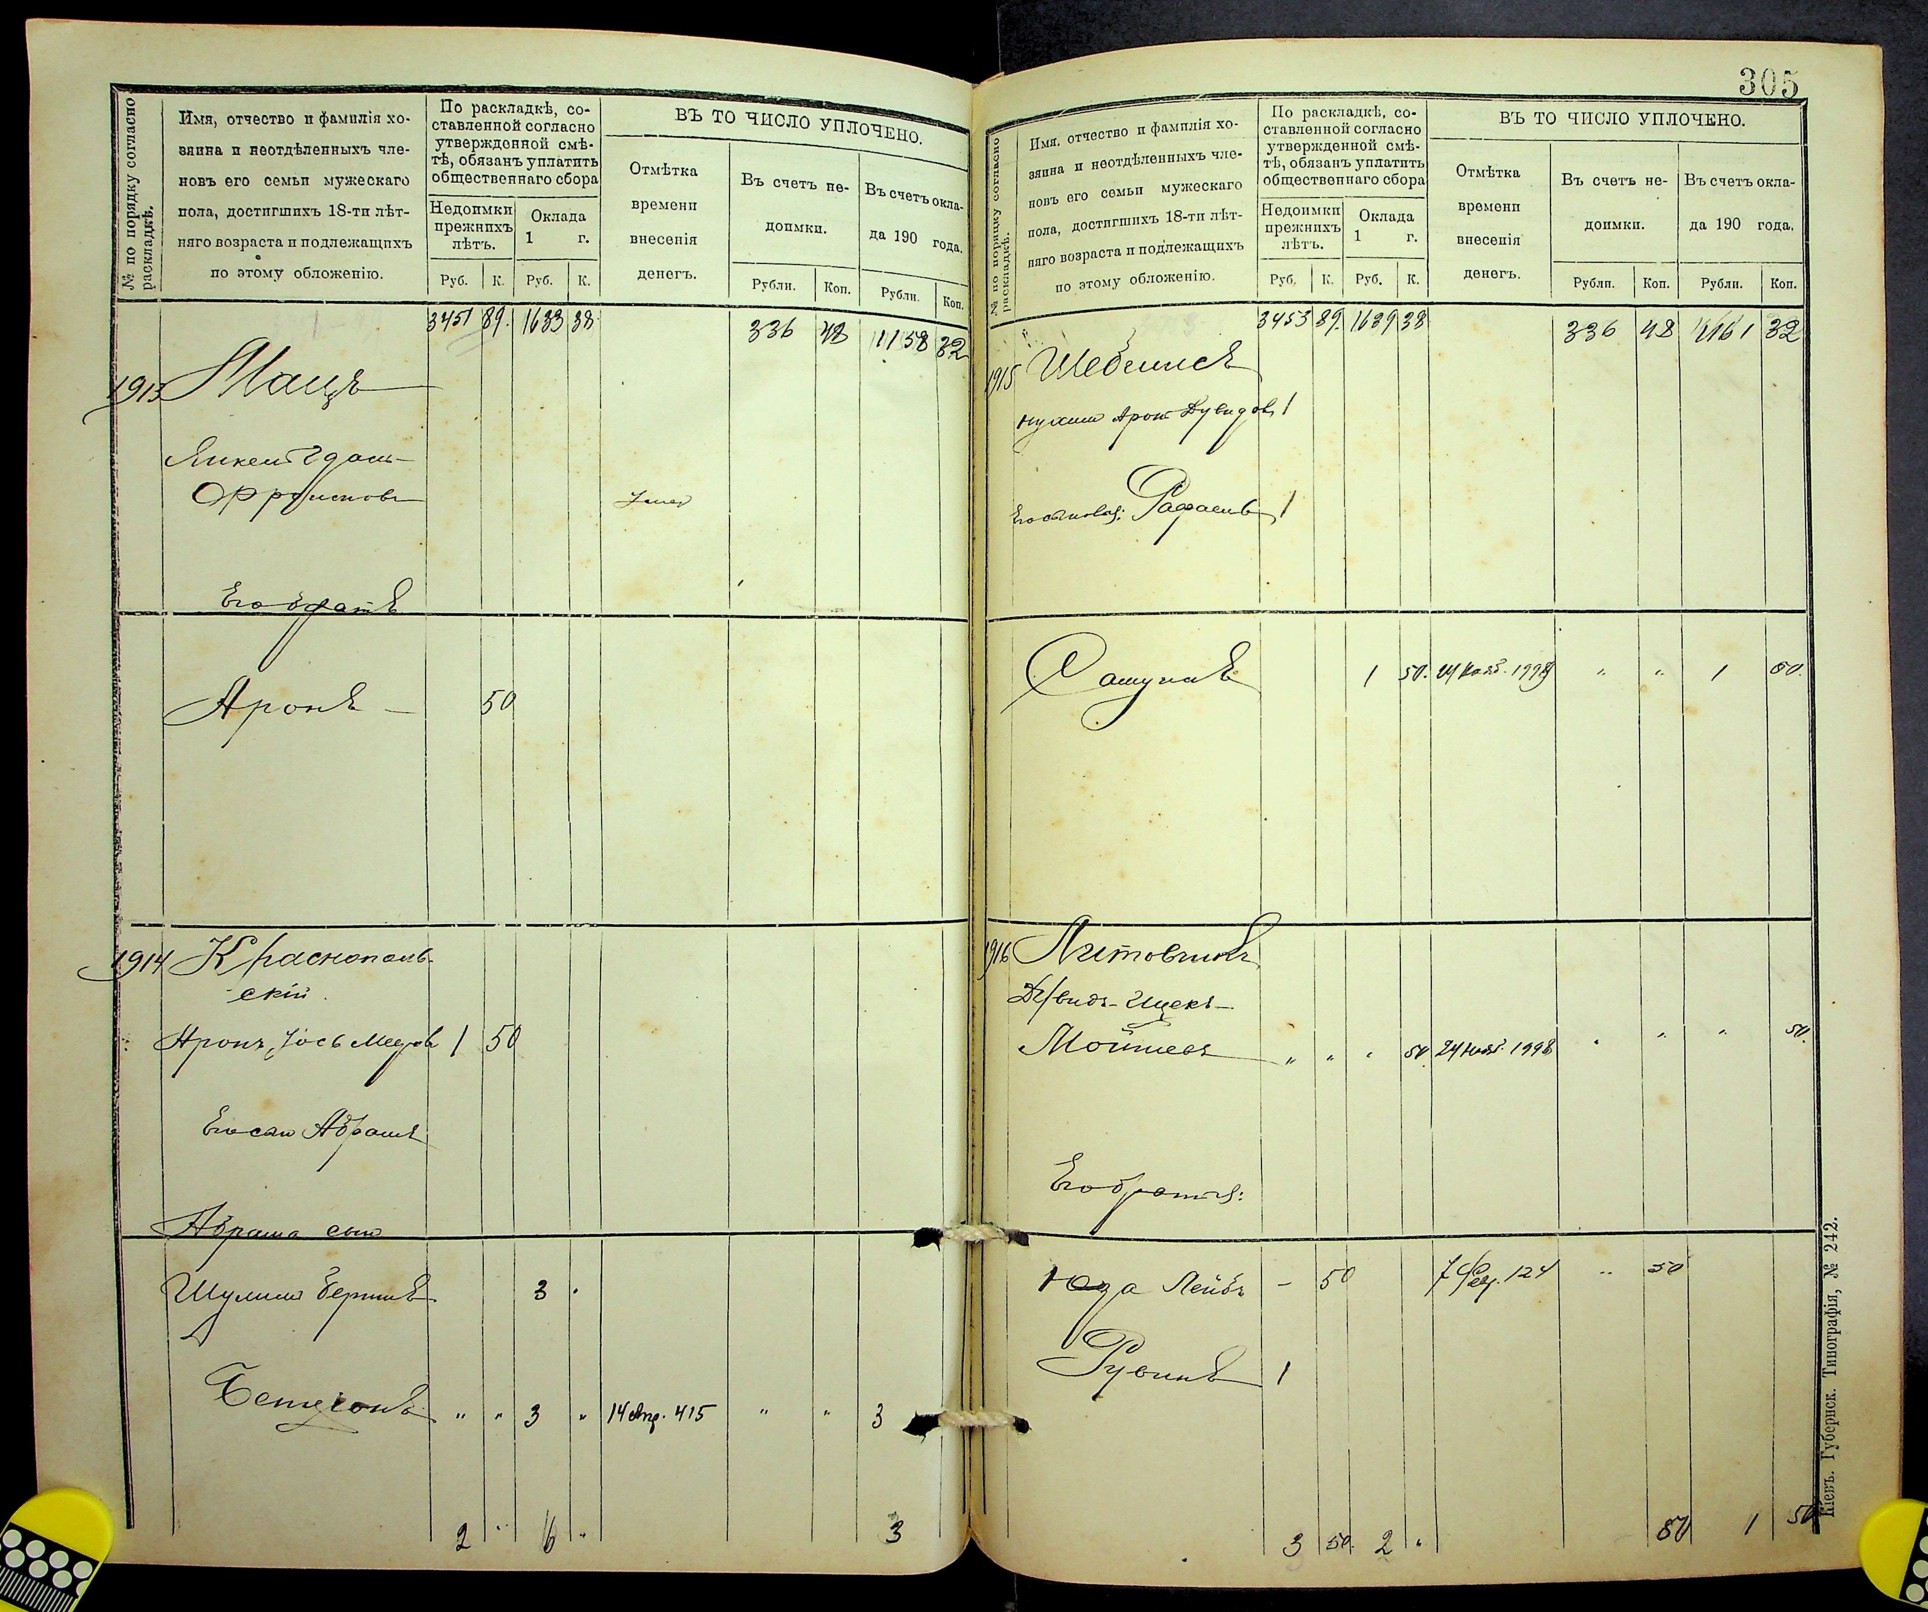 305
№ по порядку согласно раскладкѣ.
Имя, отчество и фамилія хо-
зяина и неотдѣленныхъ чле-
новъ его семьи мужескаго
пола, достигшихъ 18-ти лѣт-
няго возраста и подлежащихъ
по этому обложенію.
По раскладкѣ, со-
ставленной согласно
утвержденной смѣ-
тѣ, обязанъ уплатить
общественнаго сбора
Недоимки прежнихъ лѣтъ.
Оклада 1 г.
Руб. К. Руб. К.
ВЪ ТО ЧИСЛО УПЛОЧЕНО.
Отмѣтка времени внесенія денегъ.
Въ счетъ не-
доимки.
Въ счетъ окла-
да 190 года.
Рубли. Коп. Рубли. Коп.
3451 89. 1633 38 336 48 1158 32
1913 Мацъ
Янкель Гдаль-
Фроимовъ Умер
Его братъ
Аронъ — 50
1914 Краснополь-
скій.
Аронъ, Іось 1 50
Его сынъ Абрамъ
Абрама сынъ
Шулимъ Беркъ 3 .
" " 3 " 14 Апр. 415 " " 3
2 " 6 " 3
№ по порядку согласно раскладкѣ.
Имя, отчество и фамилія хо-
зяина и неотдѣленныхъ чле-
новъ его семьи мужескаго
пола, достигшихъ 18-ти лѣт-
няго возраста и подлежащихъ
по этому обложенію.
По раскладкѣ, со-
ставленной согласно
утвержденной смѣ-
тѣ, обязанъ уплатить
общественнаго сбора
Недоимки прежнихъ лѣтъ.
Оклада 1 г.
Руб. К. Руб. К.
ВЪ ТО ЧИСЛО УПЛОЧЕНО.
Отмѣтка времени внесенія денегъ.
Въ счетъ не-
доимки.
Въ счетъ окла-
да 190 года.
Рубли. Коп. Рубли. Коп.
3453 89. 1639 38 336 48 1161 32
1915
Нухим Арон Дувидов 1
Его сыновья: Рафаилъ 1
1 50. 24 Нояб. 1998 " " 1 50.
1916 Литовчикъ
Дувидъ-Ицекъ-
Мошковъ " " " 50. 24 Нояб. 1998 " " " 50.
Его братья:
Юза Лейбъ — 50 7 Фев. 124 " 50
Рувинъ 1
3 50. 2 " 50 1 50
Кіевъ. Губернск. Типографія, № 242.